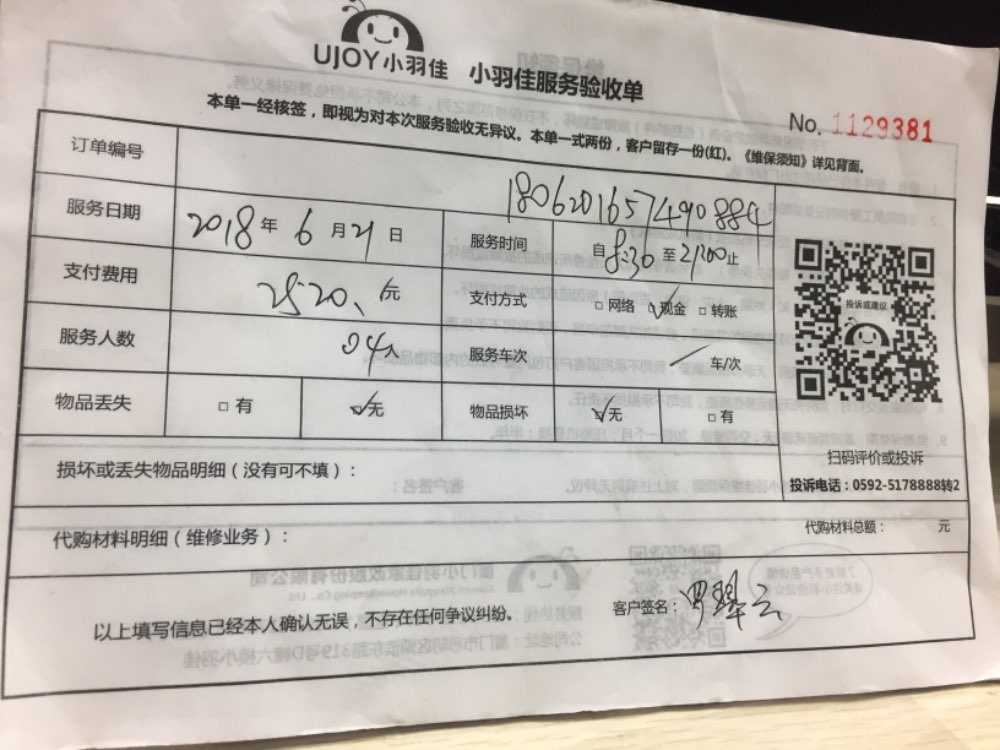 UJOY小羽佳 小羽佳服务验收单
No. 1129381
本单一经核签，即视为对本次服务验收无异议。本单一式两份，客户留存一份(红)。《维保须知》详见背面。
订单编号 1806201657490884
服务日期 2018年6月21日 服务时间 自8:30至21:00止
支付费用 2520、元 支付方式 □网络 ☑现金 □转账
服务人数 04人 服务车次 车/次
物品丢失 □有 ☑无 物品损坏 ☑无 □有
投诉或建议
扫码评价或投诉
投诉电话：0592-5178888转2
损坏或丢失物品明细（没有可不填）：
代购材料明细（维修业务）： 代购材料总额： 元
以上填写信息已经本人确认无误，不存在任何争议纠纷。 客户签名：罗翠云